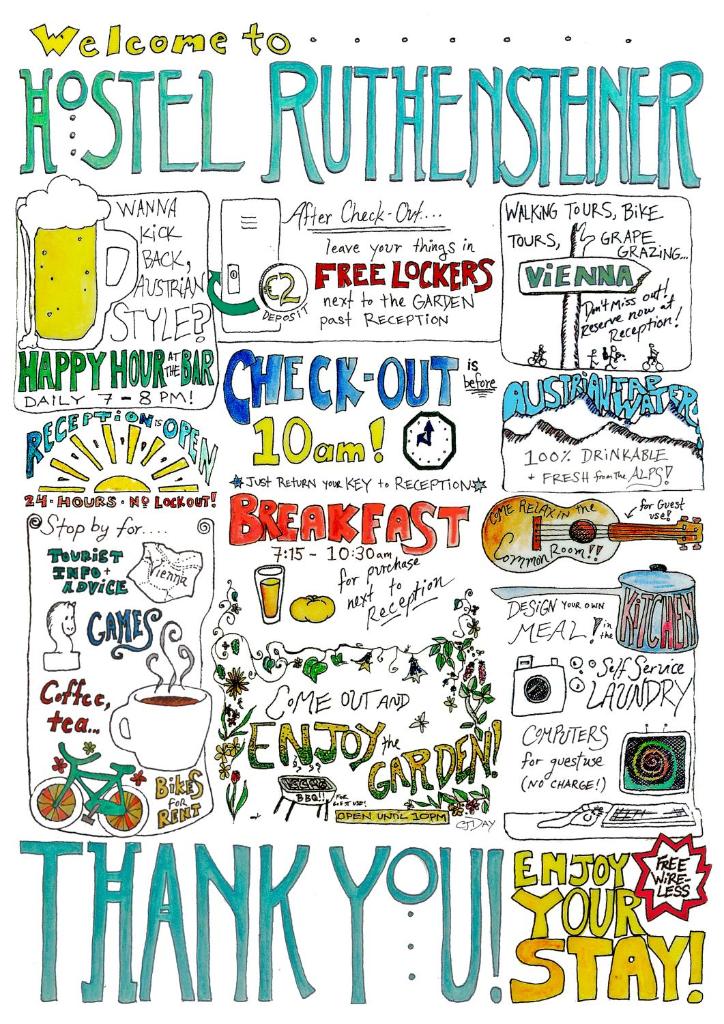 Welcome to
HOSTEL RUTHENSTEINER
WANNA
KICK
BACK,
AUSTRIAN
STYLE?
HAPPY HOUR AT THE BAR
DAILY 7-8 PM!
€2
DEPOSIT
After Check-Out...
leave your things in
FREE LOCKERS
next to the GARDEN
past RECEPTION
WALKING TOURS, BIKE
TOURS, GRAPE
GRAZING...
VIENNA
Don't Miss out!
Reserve now at
Reception!
CHECK-OUT is before
10am!
JUST RETURN YOUR KEY to RECEPTION
RECEPTION IS OPEN
24·HOURS·NO LOCKOUT!
AUSTRIAN TAP WATER
100% DRINKABLE
+ FRESH from the ALPS!
BREAKFAST
7:15 - 10:30am
for purchase
next to
Reception
COME RELAX IN the
Common Room!!
for Guest
use!
Stop by for....
TOURIST
INFO +
ADVICE
Vienna
GAMES
Coffee,
tea...
BIKES
FOR
RENT
DESIGN YOUR OWN
MEAL! in the
KITCHEN
Self Service
LAUNDRY
COMPUTERS
for guest use
(NO CHARGE!)
COME OUT AND
ENJOY the
GARDEN!
BBQ!!
FOR
GUEST USE!
OPEN UNTIL 10PM
CJDAY
THANK YOU!
ENJOY
YOUR
STAY!
FREE
WIRE-
LESS